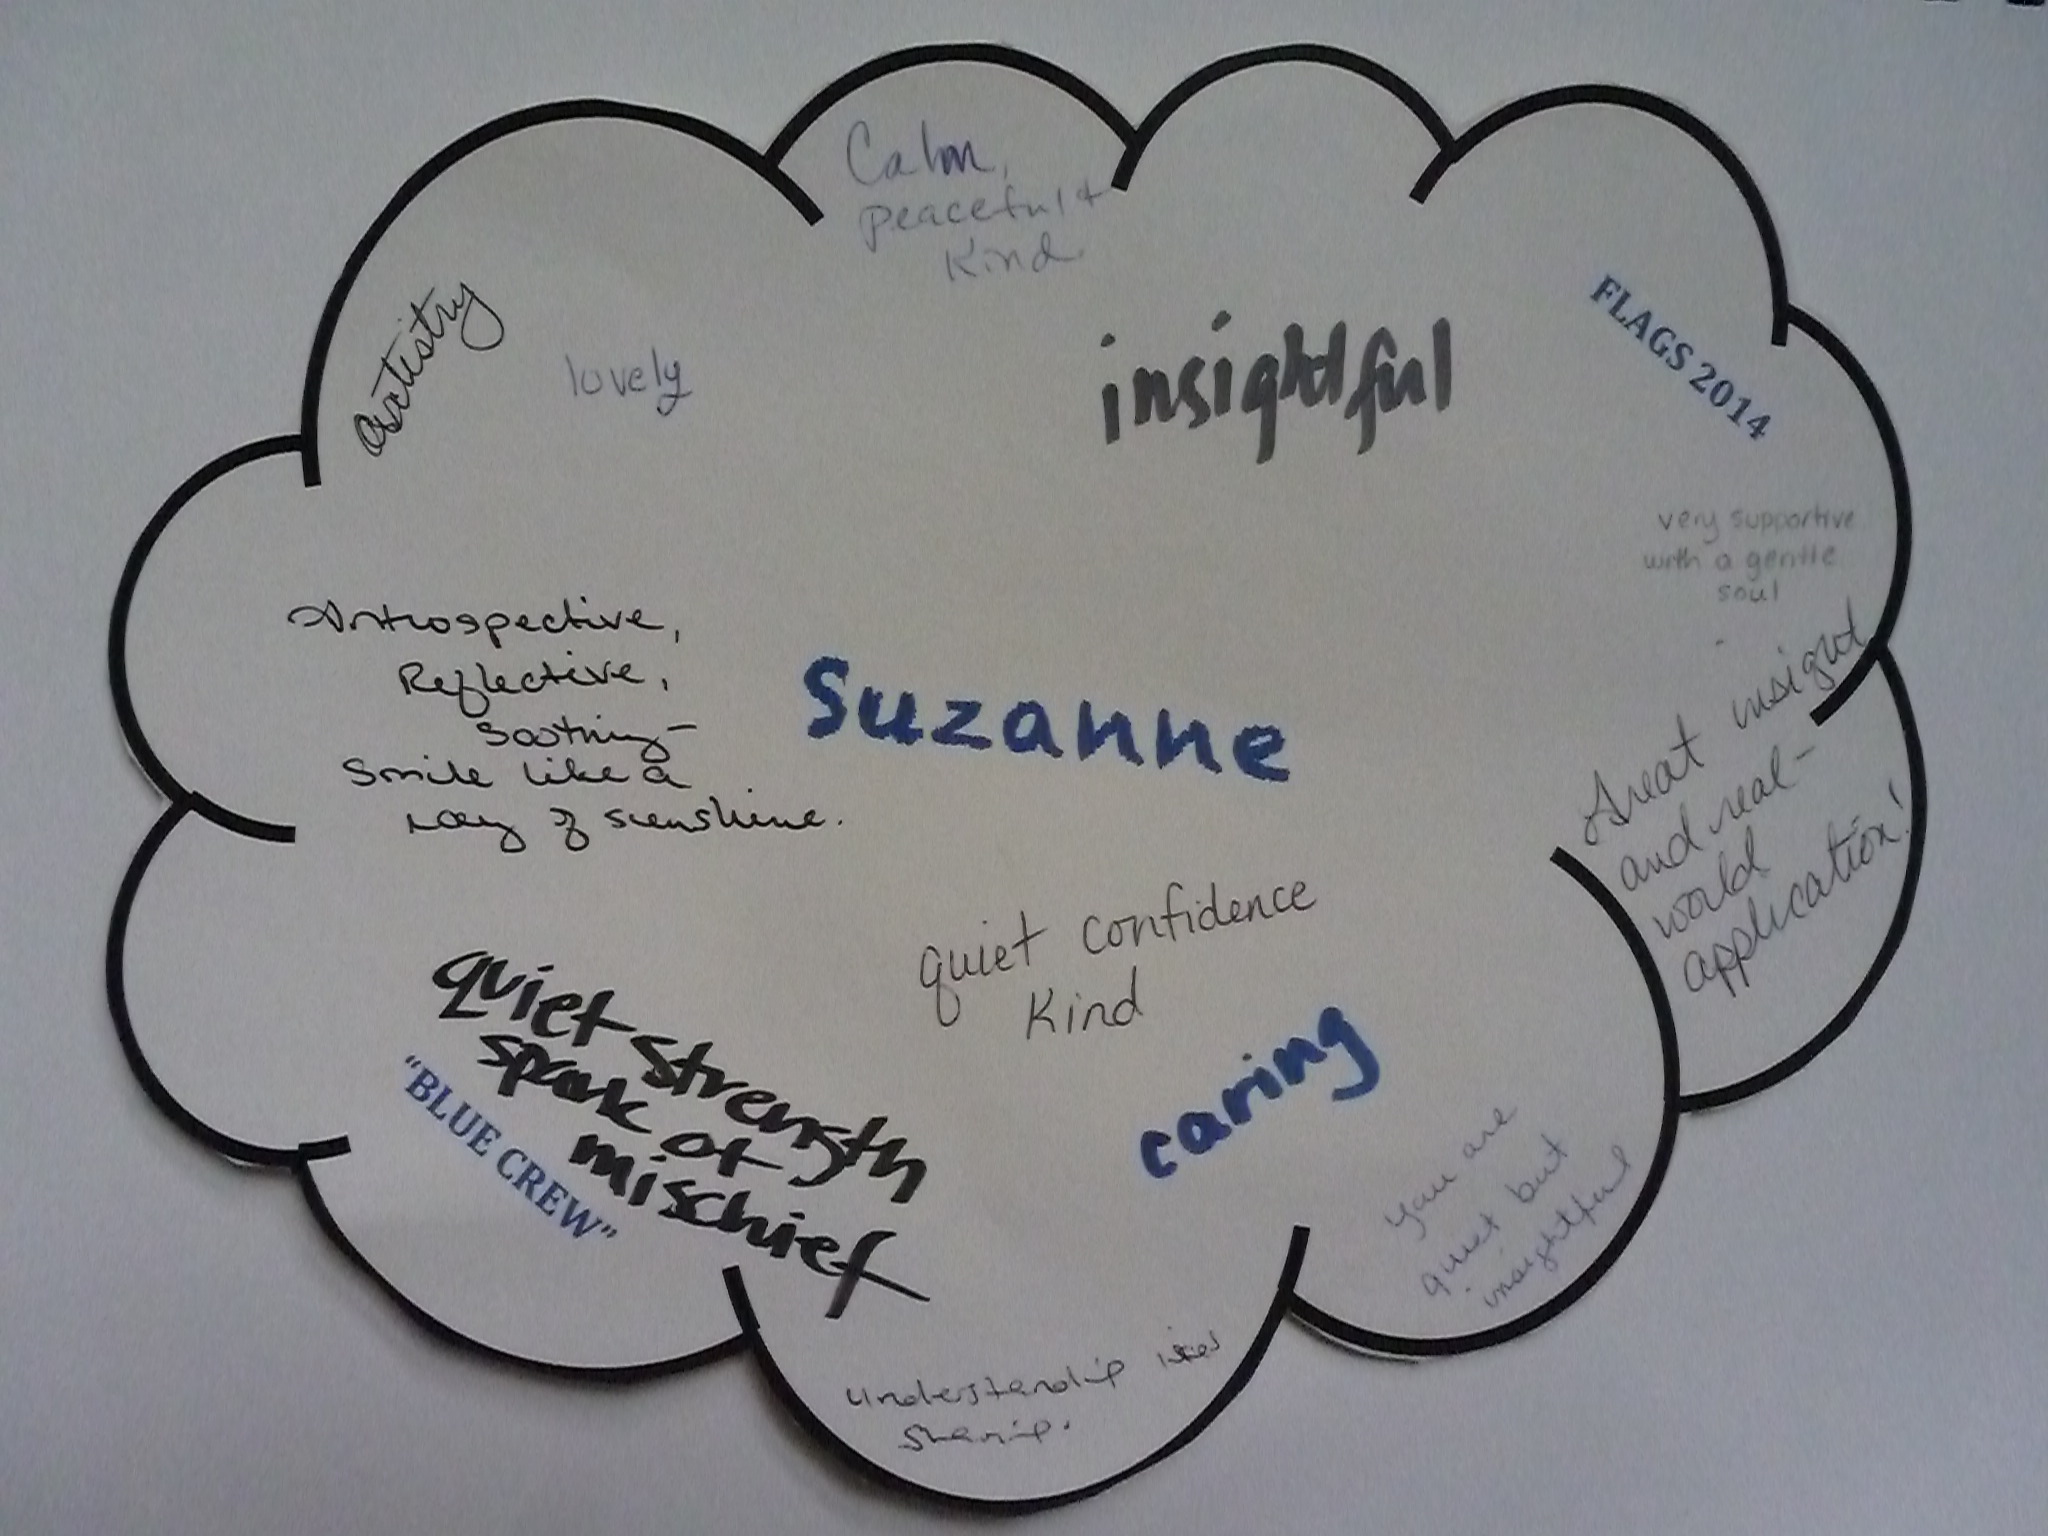 Calm,
peaceful +
Kind
artistry
lovely
insightful
FLAGS 2014
very supportive
with a gentle
soul
Introspective,
Reflective,
Soothing-
Smile like a
ray of sunshine.
Suzanne
Great insight
and real-
world
application!
quiet confidence
Kind
quiet strength
spark of
mischief
"BLUE CREW"
caring
you are
quiet but
insightful